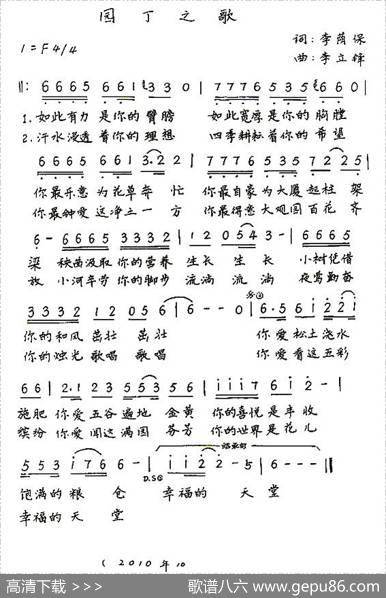 园丁之歌
词:李荫保
1=F 4/4
曲:李立锋
6665 6661 330 | 7776 535 660 |
1.如此有力 是你的臂膀 如此宽厚是你的胸膛
2.汗水浸透着你的理想 四季耕耘着你的希望
6665 6661 3·22 | 7776 535 7225 |
你最乐意为花草奔忙 你最自豪为大厦起柱架
你最钟爱这净土一方 你最得意大观园百花齐
6- 6665 3332 | 12 0543- | 3335
梁 秧苗汲取你的营养 生长 生长 小树凭借
放 小河辛劳你的脚步 流淌 流淌 夜莺勤奋
3332 12 0562 | 6--0 | 6·5 61 221
你的和风 茁壮 茁壮 你爱松土浇水
你的烛光 歌唱 歌唱 你爱看这五彩
66 | 2·123 5535 6 | 1117 612- |
施肥 你爱五谷遍地金黄 你的喜悦是丰收
缤纷 你爱闻这满园芬芳 你的世界是花儿
553 1766 6- | 1122-5 | 6--- ||
D.S
结束句
饱满的粮仓 幸福的天堂
幸福的天堂
(2010年10
高清下载 >>> 歌谱八六 www.gepu86.com